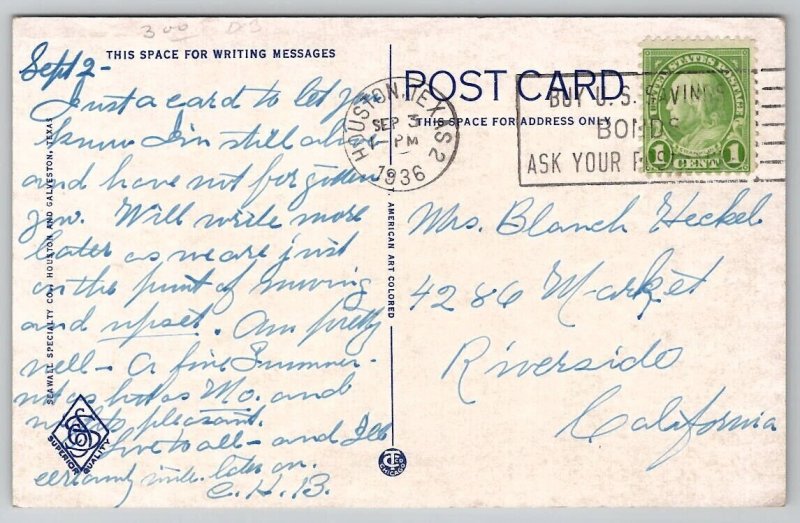 3 00
THIS SPACE FOR WRITING MESSAGES
Sept 2-
Just a card to let you
know I'm still alive
and have not forgotten
you. Will write more
later as we are just
on the point of moving
and upset. Am pretty
well - A fine Summer -
not as hot as Mo. and
nights pleasant.
love to all - and I'll
certainly write later on.
C. H. B.
SEAWALL SPECIALTY CO., HOUSTON AND GALVESTON, TEXAS
SUPERIOR QUALITY
AMERICAN ART COLORED
CT CO
CHICAGO
POST CARD
THIS SPACE FOR ADDRESS ONLY
HOUSTON, TEXAS 2
SEP 3
PM
1936
BUY U.S. SAVINGS
BONDS
ASK YOUR P
U.S. STATES POSTAGE
FRANKLIN
1 CENT 1
Mrs. Blanch Heckel
4286 Market
Riverside
California